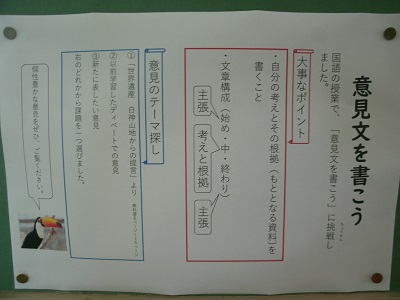 意見文を書こう
国語の授業で、「意見文を書こう」に挑戦し
ちょうせん
ました。
大事なポイント
・自分の考えとその根拠（もととなる資料）を
書くこと
・文章構成（始め・中・終わり）
主張
考えと根拠
主張
意見のテーマ探し
①「世界遺産　白神山地からの提言」より
②以前学習したディベートでの意見
③新たに表したい意見
右のどれかから課題を一つ選びました。
個性豊かな意見をぜひ、ご覧ください。